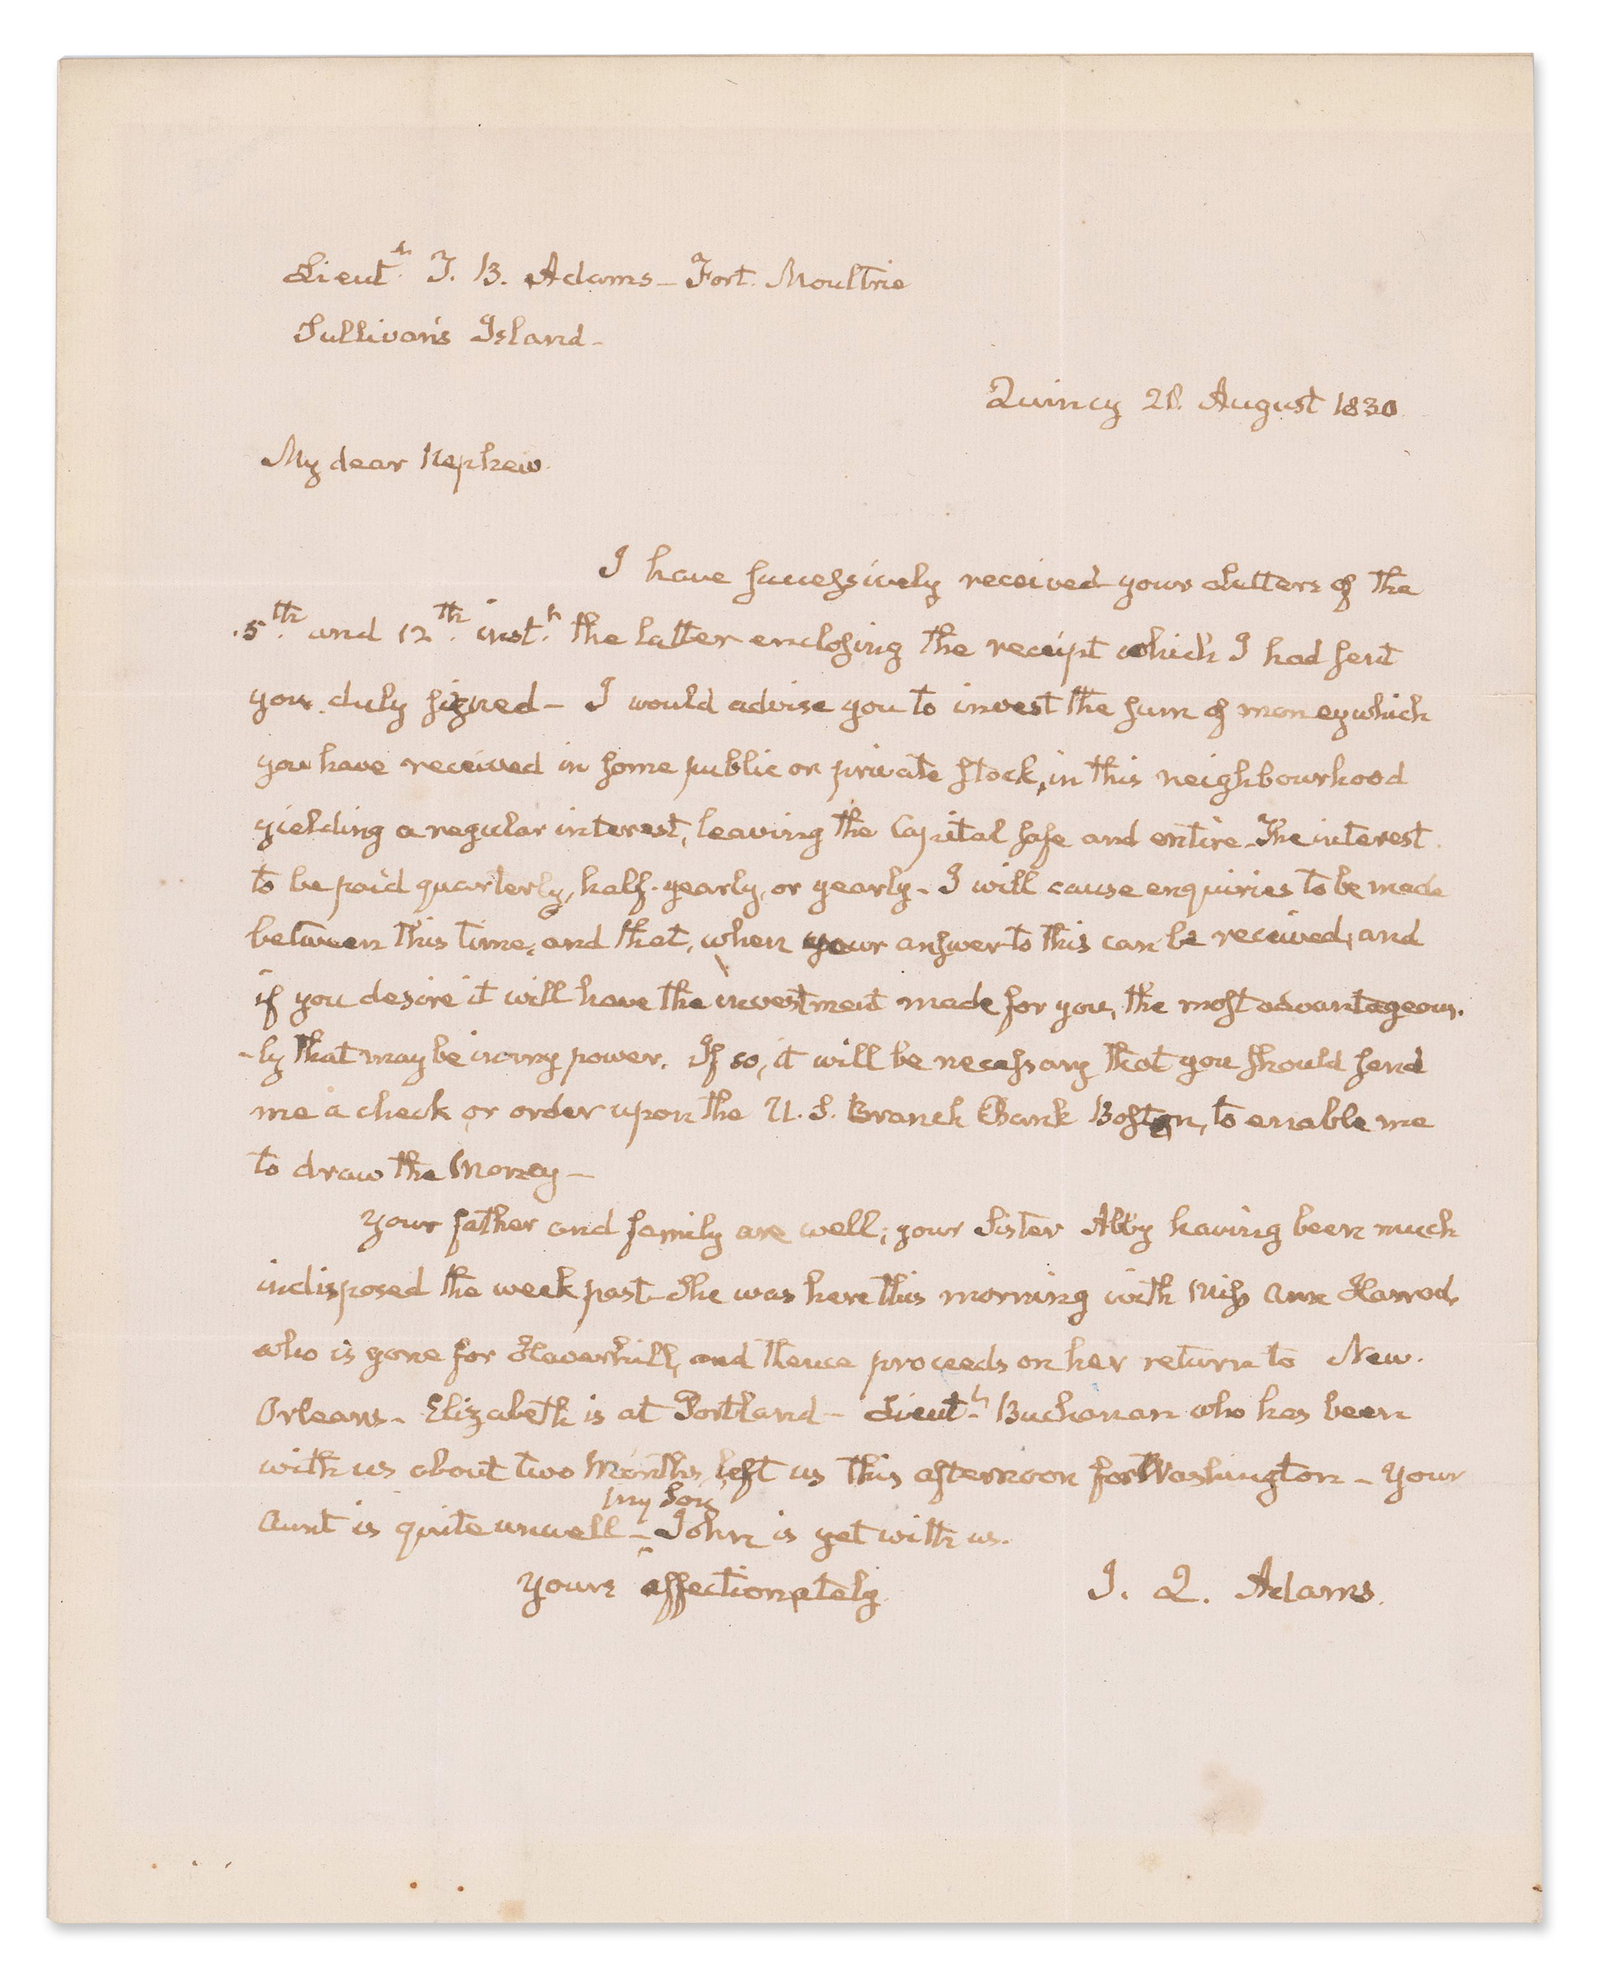 Lieut.t T. B. Adams – Fort Moultrie
Sullivan's Island –
Quincy 28. August 1830
My dear Nephew.
I have successively received your Letters of the
5th. and 12th. inst.t the latter enclosing the receipt which I had sent
you duly signed – I would advise you to invest the sum of money which
you have received in some public or private stock, in this neighbourhood
yielding a regular interest, leaving the Capital safe and entire – The interest
to be paid quarterly, half-yearly, or yearly – I will cause enquiries to be made
between this time, and that, when your answer to this can be received, and
if you desire it will have the investment made for you, the most advantageous-
-ly that may be in my power. If so, it will be necessary that you should send
me a check or order upon the U. S. Branch Bank Boston, to enable me
to draw the Money –
Your father and family are well; your Sister Abby having been much
indisposed the week past – She was here this morning with Miss Ann Harrod,
who is gone for Haverhill, and thence proceeds on her return to New-
Orleans – Elizabeth is at Portland – Lieut.t Buchanan who has been
with us about two Months, left us this afternoon for Washington – Your
my Son
Aunt is quite unwell – John is yet with us.
Yours affectionately J. Q. Adams.